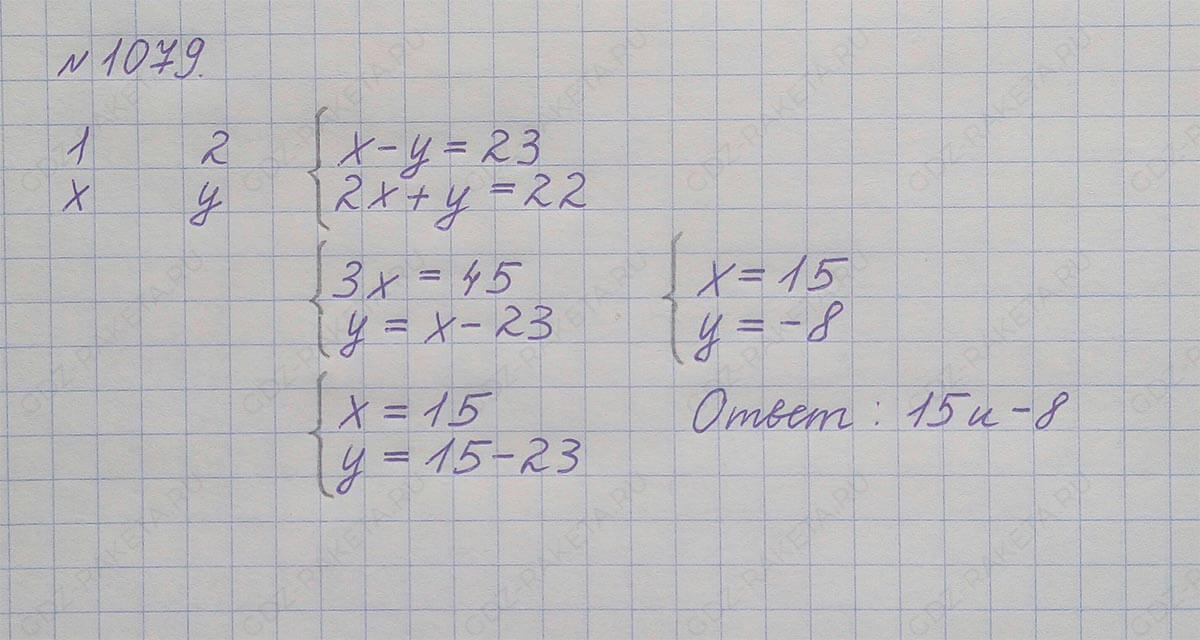 № 1079.
1 2
x y
x - y = 23
2x + y = 22
3x = 45
y = x - 23
x = 15
y = 15 - 23
x = 15
y = -8
Ответ: 15 и -8
GDZ-RAKETA.RU